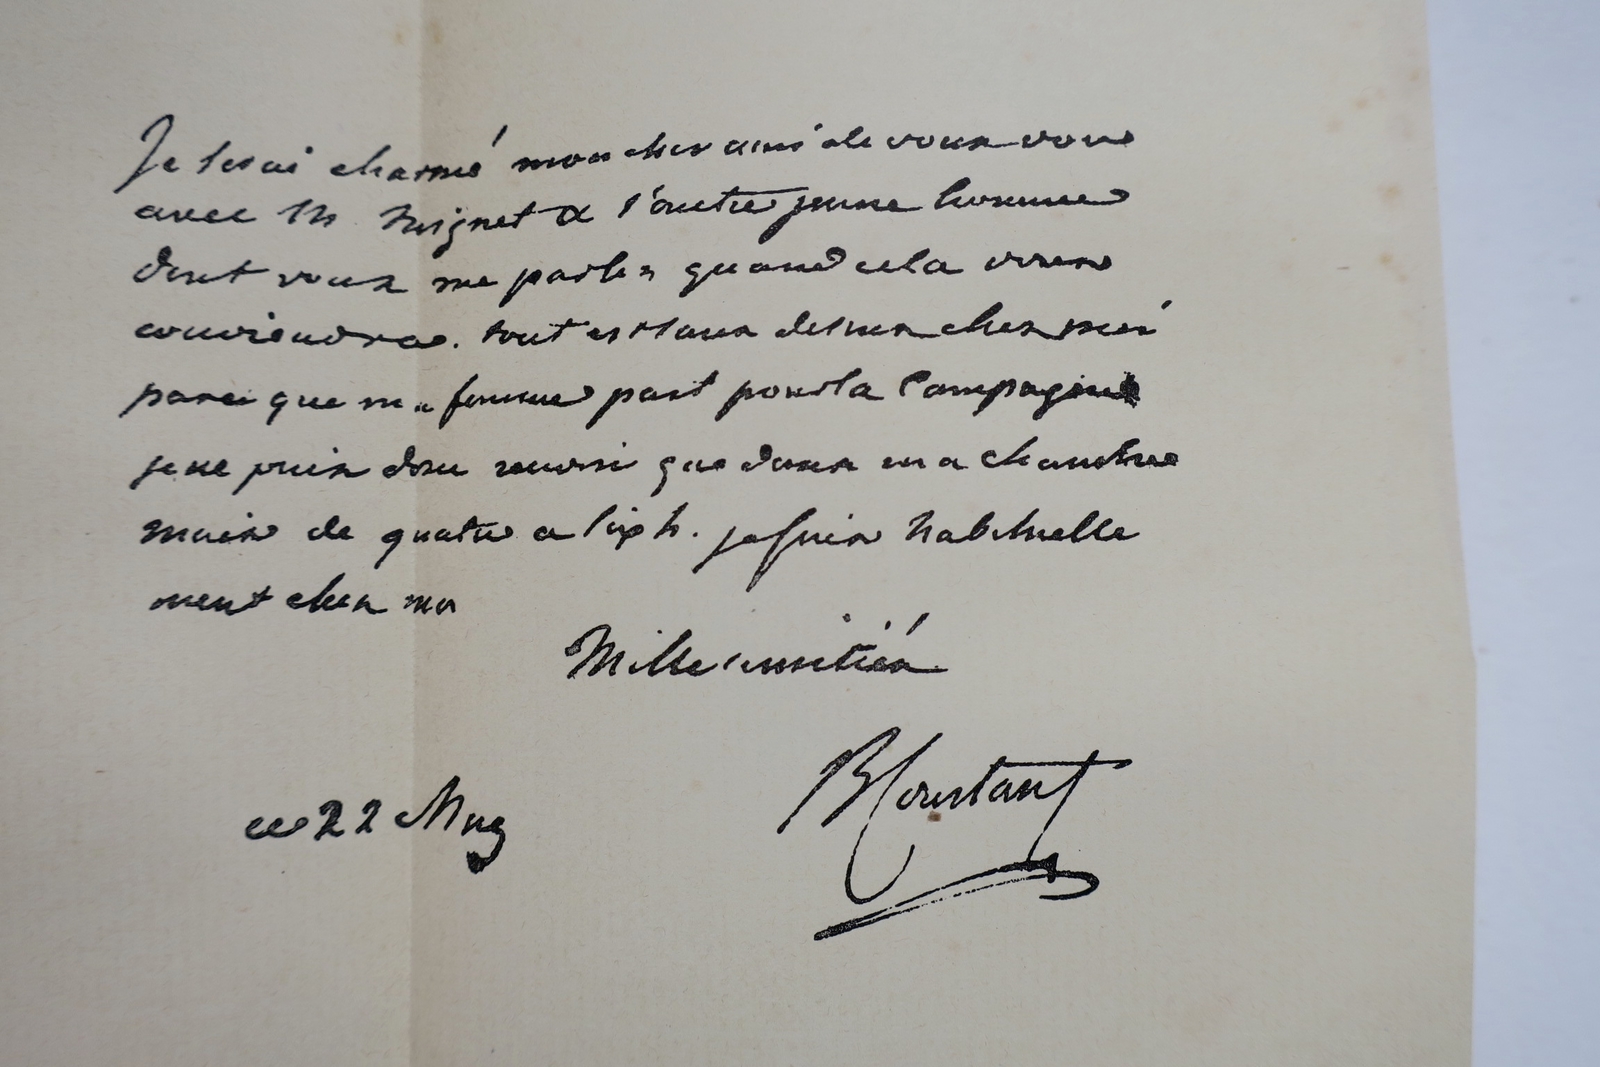 Je serai charmé mon cher ami de vous voir
avec M. Mignet & l'autre jeune homme
dont vous me parlez quand cela vous
conviendra. tout est sans dessus chez moi
parce que ma femme part pour la Campagne
je ne puis donc recevoir que dans ma chambre
mais de quatre a six h. je suis habituelle
ment chez moi
Mille amitiés
ce 22 May
B Constant